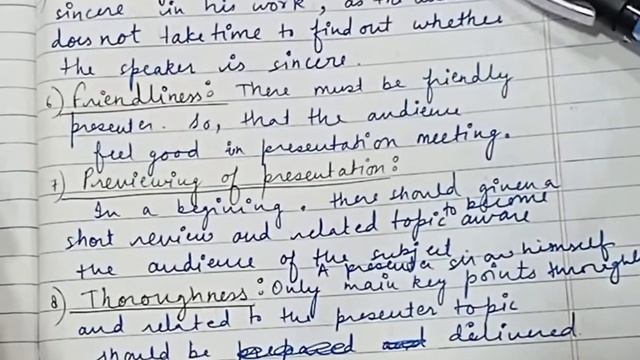 sincere in his work, as the
does not take time to find out whether
the speaker is sincere.
6) Friendliness: There must be friendly
presenter. So, that the audience
feel good in presentation meeting.
7) Previewing of presentation:
In a begining. there should given a
short review and related topic to become aware
the audience of the subject.
A presenter himself
8) Thoroughness: Only main key points through
and related to the presenter topic
should be delivered.